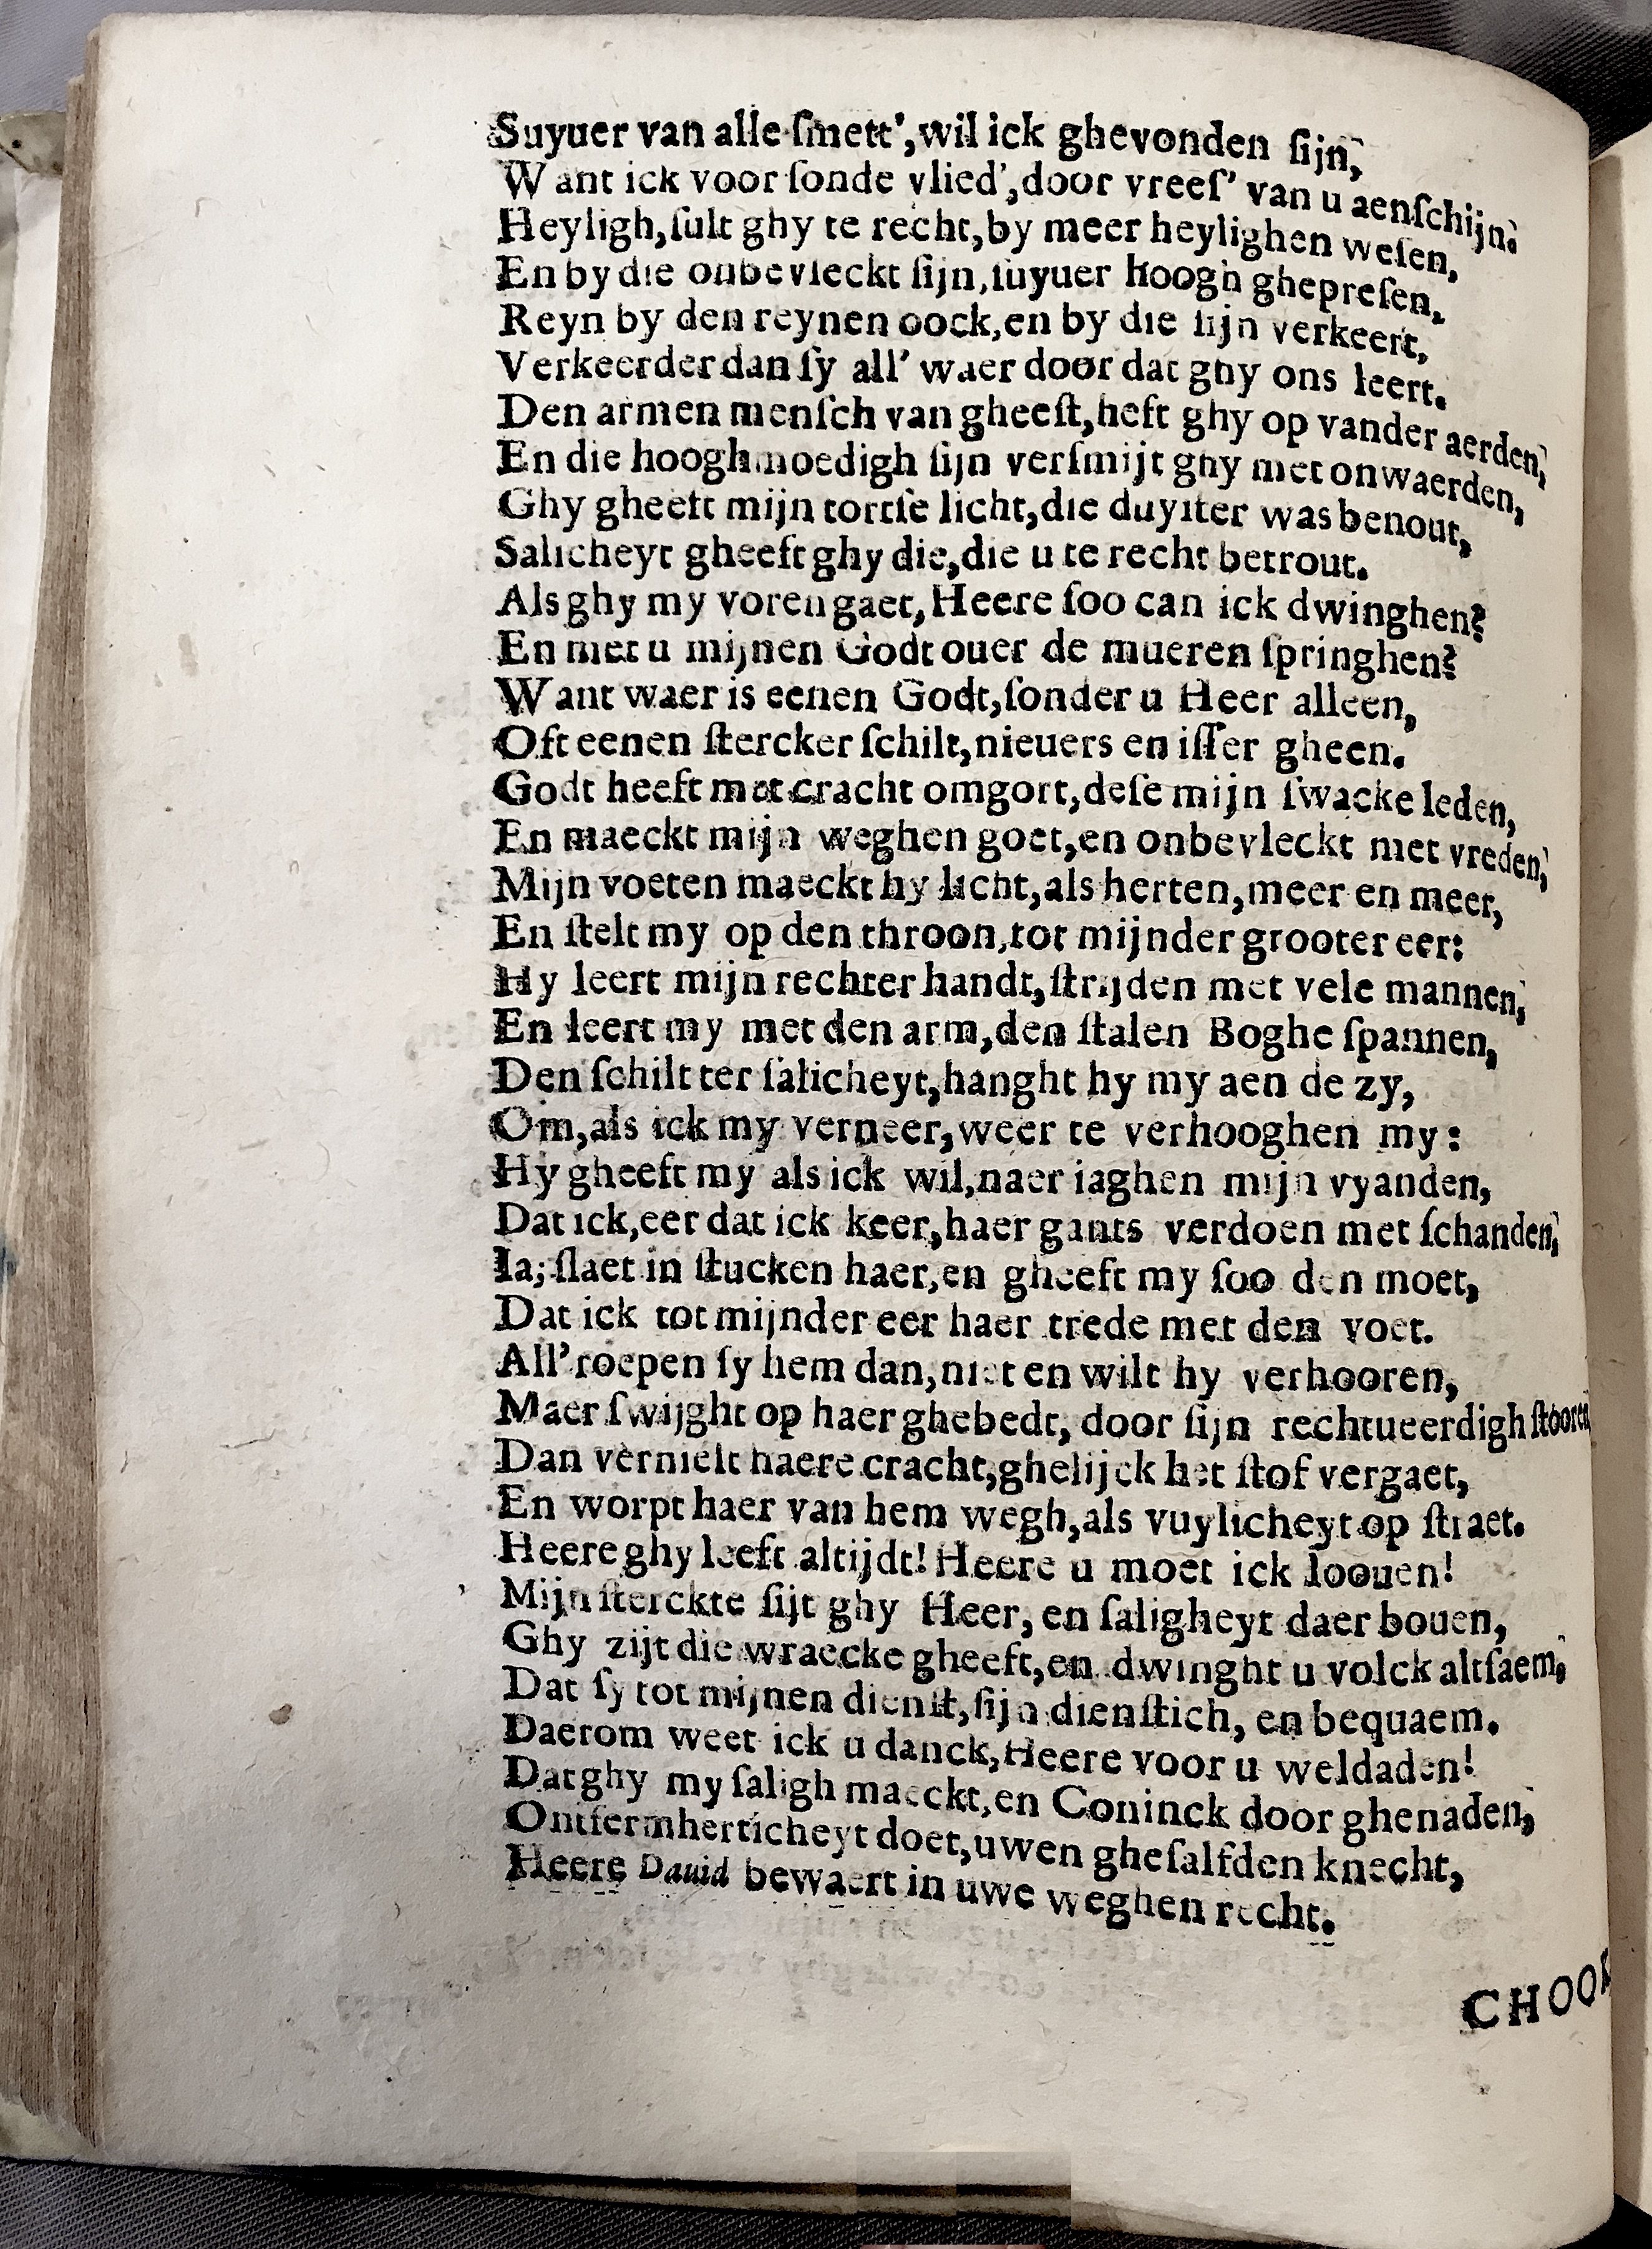 Suyuer van alle ſmett', wil ick ghevonden ſijn,
Want ick voor ſonde vlied', door vreeſ' van u aenſchijn:
Heyligh, ſult ghy te recht, by meer heylighen weſen,
En by die onbevleckt ſijn, ſuyuer hoogh ghepreſen,
Reyn by den reynen oock, en by die ſijn verkeert,
Verkeerder dan ſy all' waer door dat ghy ons leert.
Den armen menſch van gheeſt, heft ghy op vander aerden,
En die hooghmoedigh ſijn verſmijt ghy met onwaerden,
Ghy gheeft mijn tortſe licht, die duyſter was benout,
Salicheyt gheeft ghy die, die u te recht betrout.
Als ghy my voren gaet, Heere ſoo can ick dwinghen?
En met u mijnen Godt ouer de mueren ſpringhen?
Want waer is eenen Godt, ſonder u Heer alleen,
Oft eenen ſtercker ſchilt, nieuers en iſſer gheen.
Godt heeft met cracht omgort, deſe mijn ſwacke leden,
En maeckt mijn weghen goet, en onbevleckt met vreden,
Mijn voeten maeckt hy licht, als herten, meer en meer,
En ſtelt my op den throon, tot mijnder grooter eer:
Hy leert mijn rechter handt, ſtrijden met vele mannen,
En leert my met den arm, den ſtalen Boghe ſpannen,
Den ſchilt ter ſalicheyt, hanght hy my aen de zy,
Om, als ick my verneer, weer te verhooghen my:
Hy gheeft my als ick wil, naer iaghen mijn vyanden,
Dat ick, eer dat ick keer, haer gants verdoen met ſchanden,
Ia, ſlaet in ſtucken haer, en gheeft my ſoo den moet,
Dat ick tot mijnder eer haer trede met den voet.
All' roepen ſy hem dan, niet en wilt hy verhooren,
Maer ſwijght op haer ghebedt, door ſijn rechtueerdigh
Dan vernielt haere cracht, ghelijck het ſtof vergaet,
En worpt haer van hem wegh, als vuylicheyt op ſtraet.
Heere ghy leeft altijdt! Heere u moet ick loouen!
Mijn ſterckte ſijt ghy Heer, en ſaligheyt daer bouen,
Ghy zijt die wraecke gheeft, en dwinght u volck altſaem,
Dat ſy tot mijnen dienſt, ſijn dienſtich, en bequaem.
Daerom weet ick u danck, Heere voor u weldaden!
Dat ghy my ſaligh maeckt, en Coninck door ghenaden,
Ontfermherticheyt doet, uwen gheſalfden knecht,
Heere Dauid bewaert in uwe weghen recht.